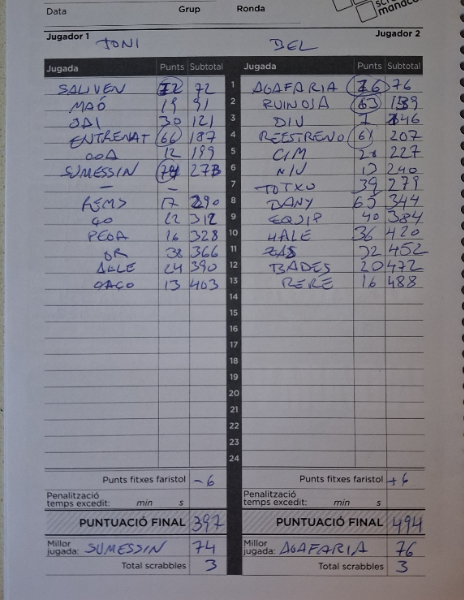 Data Grup Ronda
Jugador 1 TONI DEL Jugador 2
Jugada Punts Subtotal Jugada Punts Subtotal
SALIVEN 72 72 1 AGAFARIA 76 76
MAÓ 19 91 2 RUINOJA 63 139
30 121 3 DIU 7 146
ENTRENAT 66 187 4 REESTRENO 61 207
12 199 5 CIM 20 227
SUMESSIN 74 273 6 NIU 13 240
– – 7 TOTXO 39 279
FEMS 17 290 8 DANY 65 344
GO 22 312 9 EQUIP 40 384
PEGA 16 328 10 HALE 36 420
OR 38 366 11 32 452
24 390 12 BADES 20 472
CACO 13 403 13 RERE 16 488
14
15
16
17
18
19
20
21
22
23
24
Punts fitxes faristol -6 Punts fitxes faristol +6
Penalització temps excedit: min s Penalització temps excedit: min s
PUNTUACIÓ FINAL 397 PUNTUACIÓ FINAL 494
Millor jugada: SUMESSIN 74 Millor jugada: AGAFARIA 76
Total scrabbles 3 Total scrabbles 3